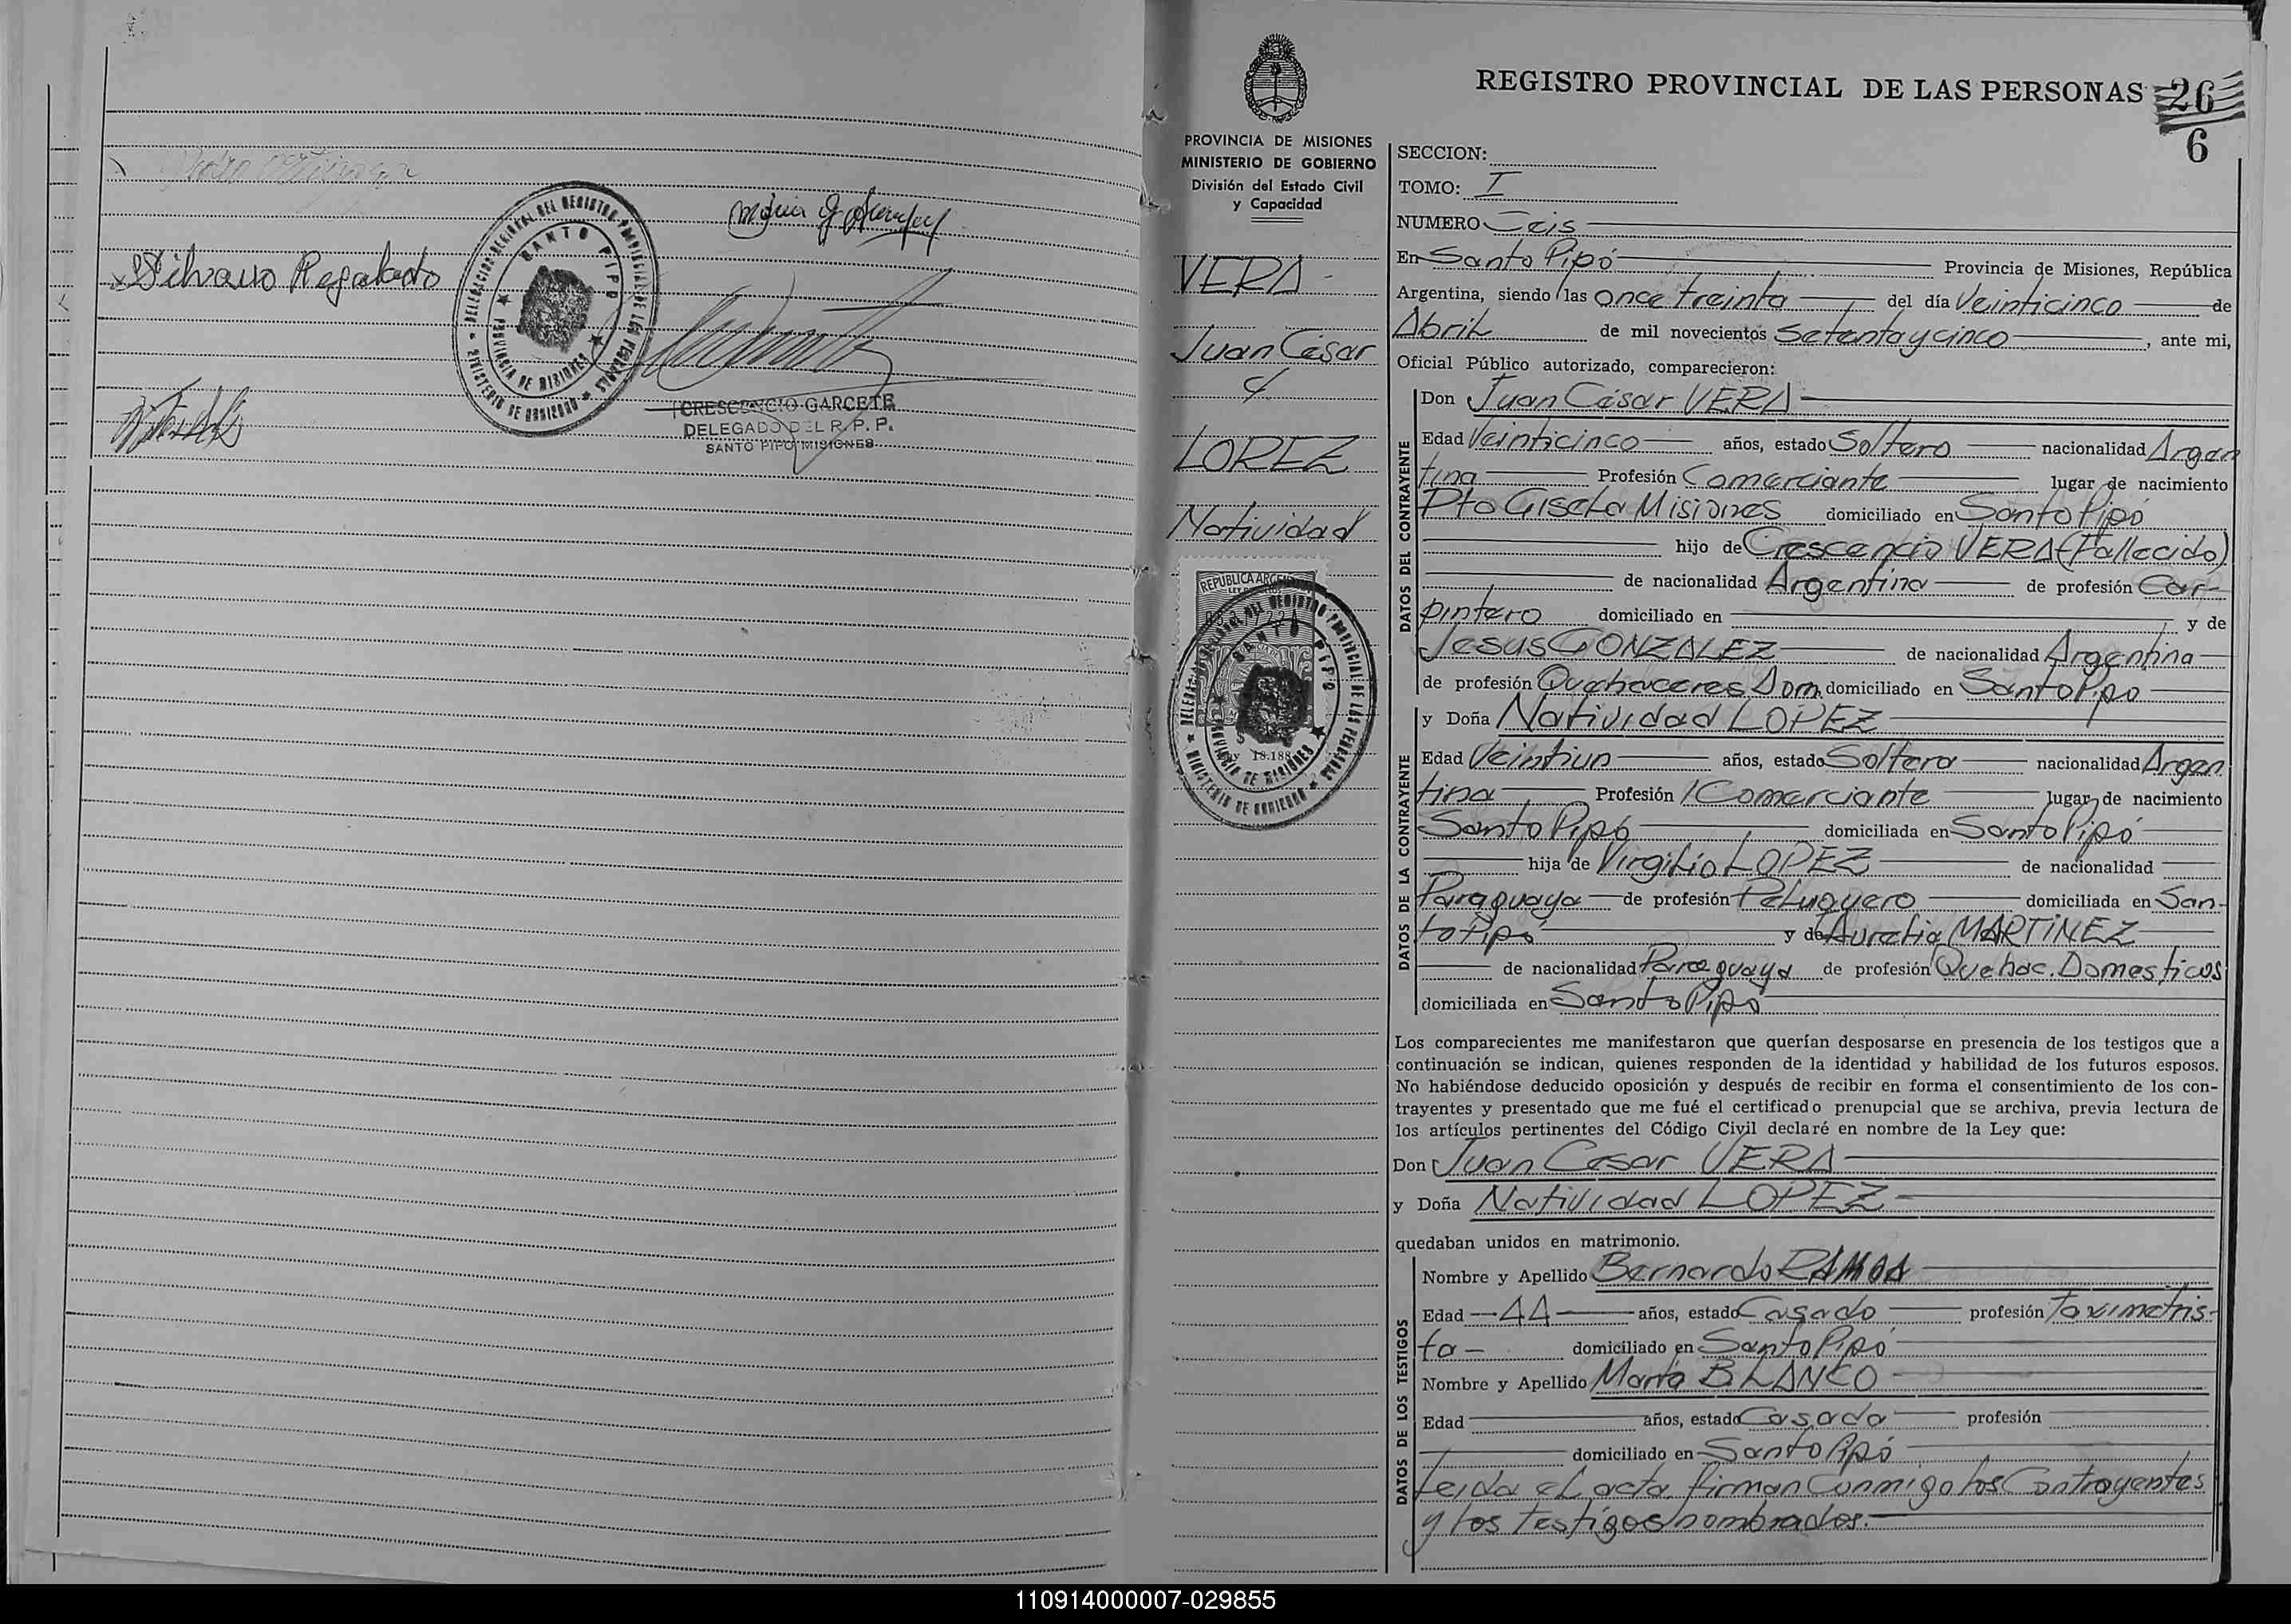 Silvano Regalado
DELEGACION REGIONAL DEL REGISTRO PROVINCIAL DE LAS PERSONAS
SANTO PIPO
PROVINCIA DE MISIONES
MINISTERIO DE GOBIERNO
CRESCENCIO GARCETE
DELEGADO DEL R. P. P.
SANTO PIPO MISIONES
PROVINCIA DE MISIONES
MINISTERIO DE GOBIERNO
División del Estado Civil
y Capacidad
VERA
Juan César
y
LOPEZ
Natividad
REPUBLICA ARGENTINA
DELEGACION REGIONAL DEL REGISTRO PROVINCIAL DE LAS PERSONAS
SANTO PIPO
PROVINCIA DE MISIONES
MINISTERIO DE GOBIERNO
REGISTRO PROVINCIAL DE LAS PERSONAS 26
6
SECCION:
TOMO: I
NUMERO Ceis
En Santo Pipó Provincia de Misiones, República
Argentina, siendo las once treinta del día Veinticinco de
Abril de mil novecientos Setenta y cinco, ante mi,
Oficial Público autorizado, comparecieron:
DATOS DEL CONTRAYENTE
Don Juan César VERA
Edad Veinticinco años, estado Soltero nacionalidad Argen
tina Profesión Comerciante lugar de nacimiento
Pto Gisela Misiones domiciliado en Santo Pipó
hijo de Crescencio VERA (Fallecido)
de nacionalidad Argentina de profesión Car-
pintero domiciliado en y de
Jesus GONZALEZ de nacionalidad Argentina
de profesión Quehaceres Dom. domiciliado en Santo Pipo
DATOS DE LA CONTRAYENTE
y Doña Natividad LOPEZ
Edad Veintiun años, estado Soltera nacionalidad Argen
tina Profesión Comerciante lugar de nacimiento
Santo Pipó domiciliada en Santo Pipó
hija de Virgilio LOPEZ de nacionalidad
Paraguaya de profesión Peluquero domiciliada en San-
to Pipó y de Aurelia MARTINEZ
de nacionalidad Paraguaya de profesión Quehac. Domesticos
domiciliada en Santo Pipó
Los comparecientes me manifestaron que querían desposarse en presencia de los testigos que a
continuación se indican, quienes responden de la identidad y habilidad de los futuros esposos.
No habiéndose deducido oposición y después de recibir en forma el consentimiento de los con-
trayentes y presentado que me fué el certificado prenupcial que se archiva, previa lectura de
los artículos pertinentes del Código Civil declaré en nombre de la Ley que:
Don Juan Cesar VERA
y Doña Natividad LOPEZ
quedaban unidos en matrimonio.
DATOS DE LOS TESTIGOS
Nombre y Apellido Bernardo RAMOA
Edad 44 años, estado Casado profesión Taximetris-
ta- domiciliado en Santo Pipó
Nombre y Apellido María BLANCO
Edad años, estado Casada profesión
domiciliado en Santo Pipó
Leida el acta, firman Conmigo los Contrayentes
y los testigos nombrados.
110914000007-029855